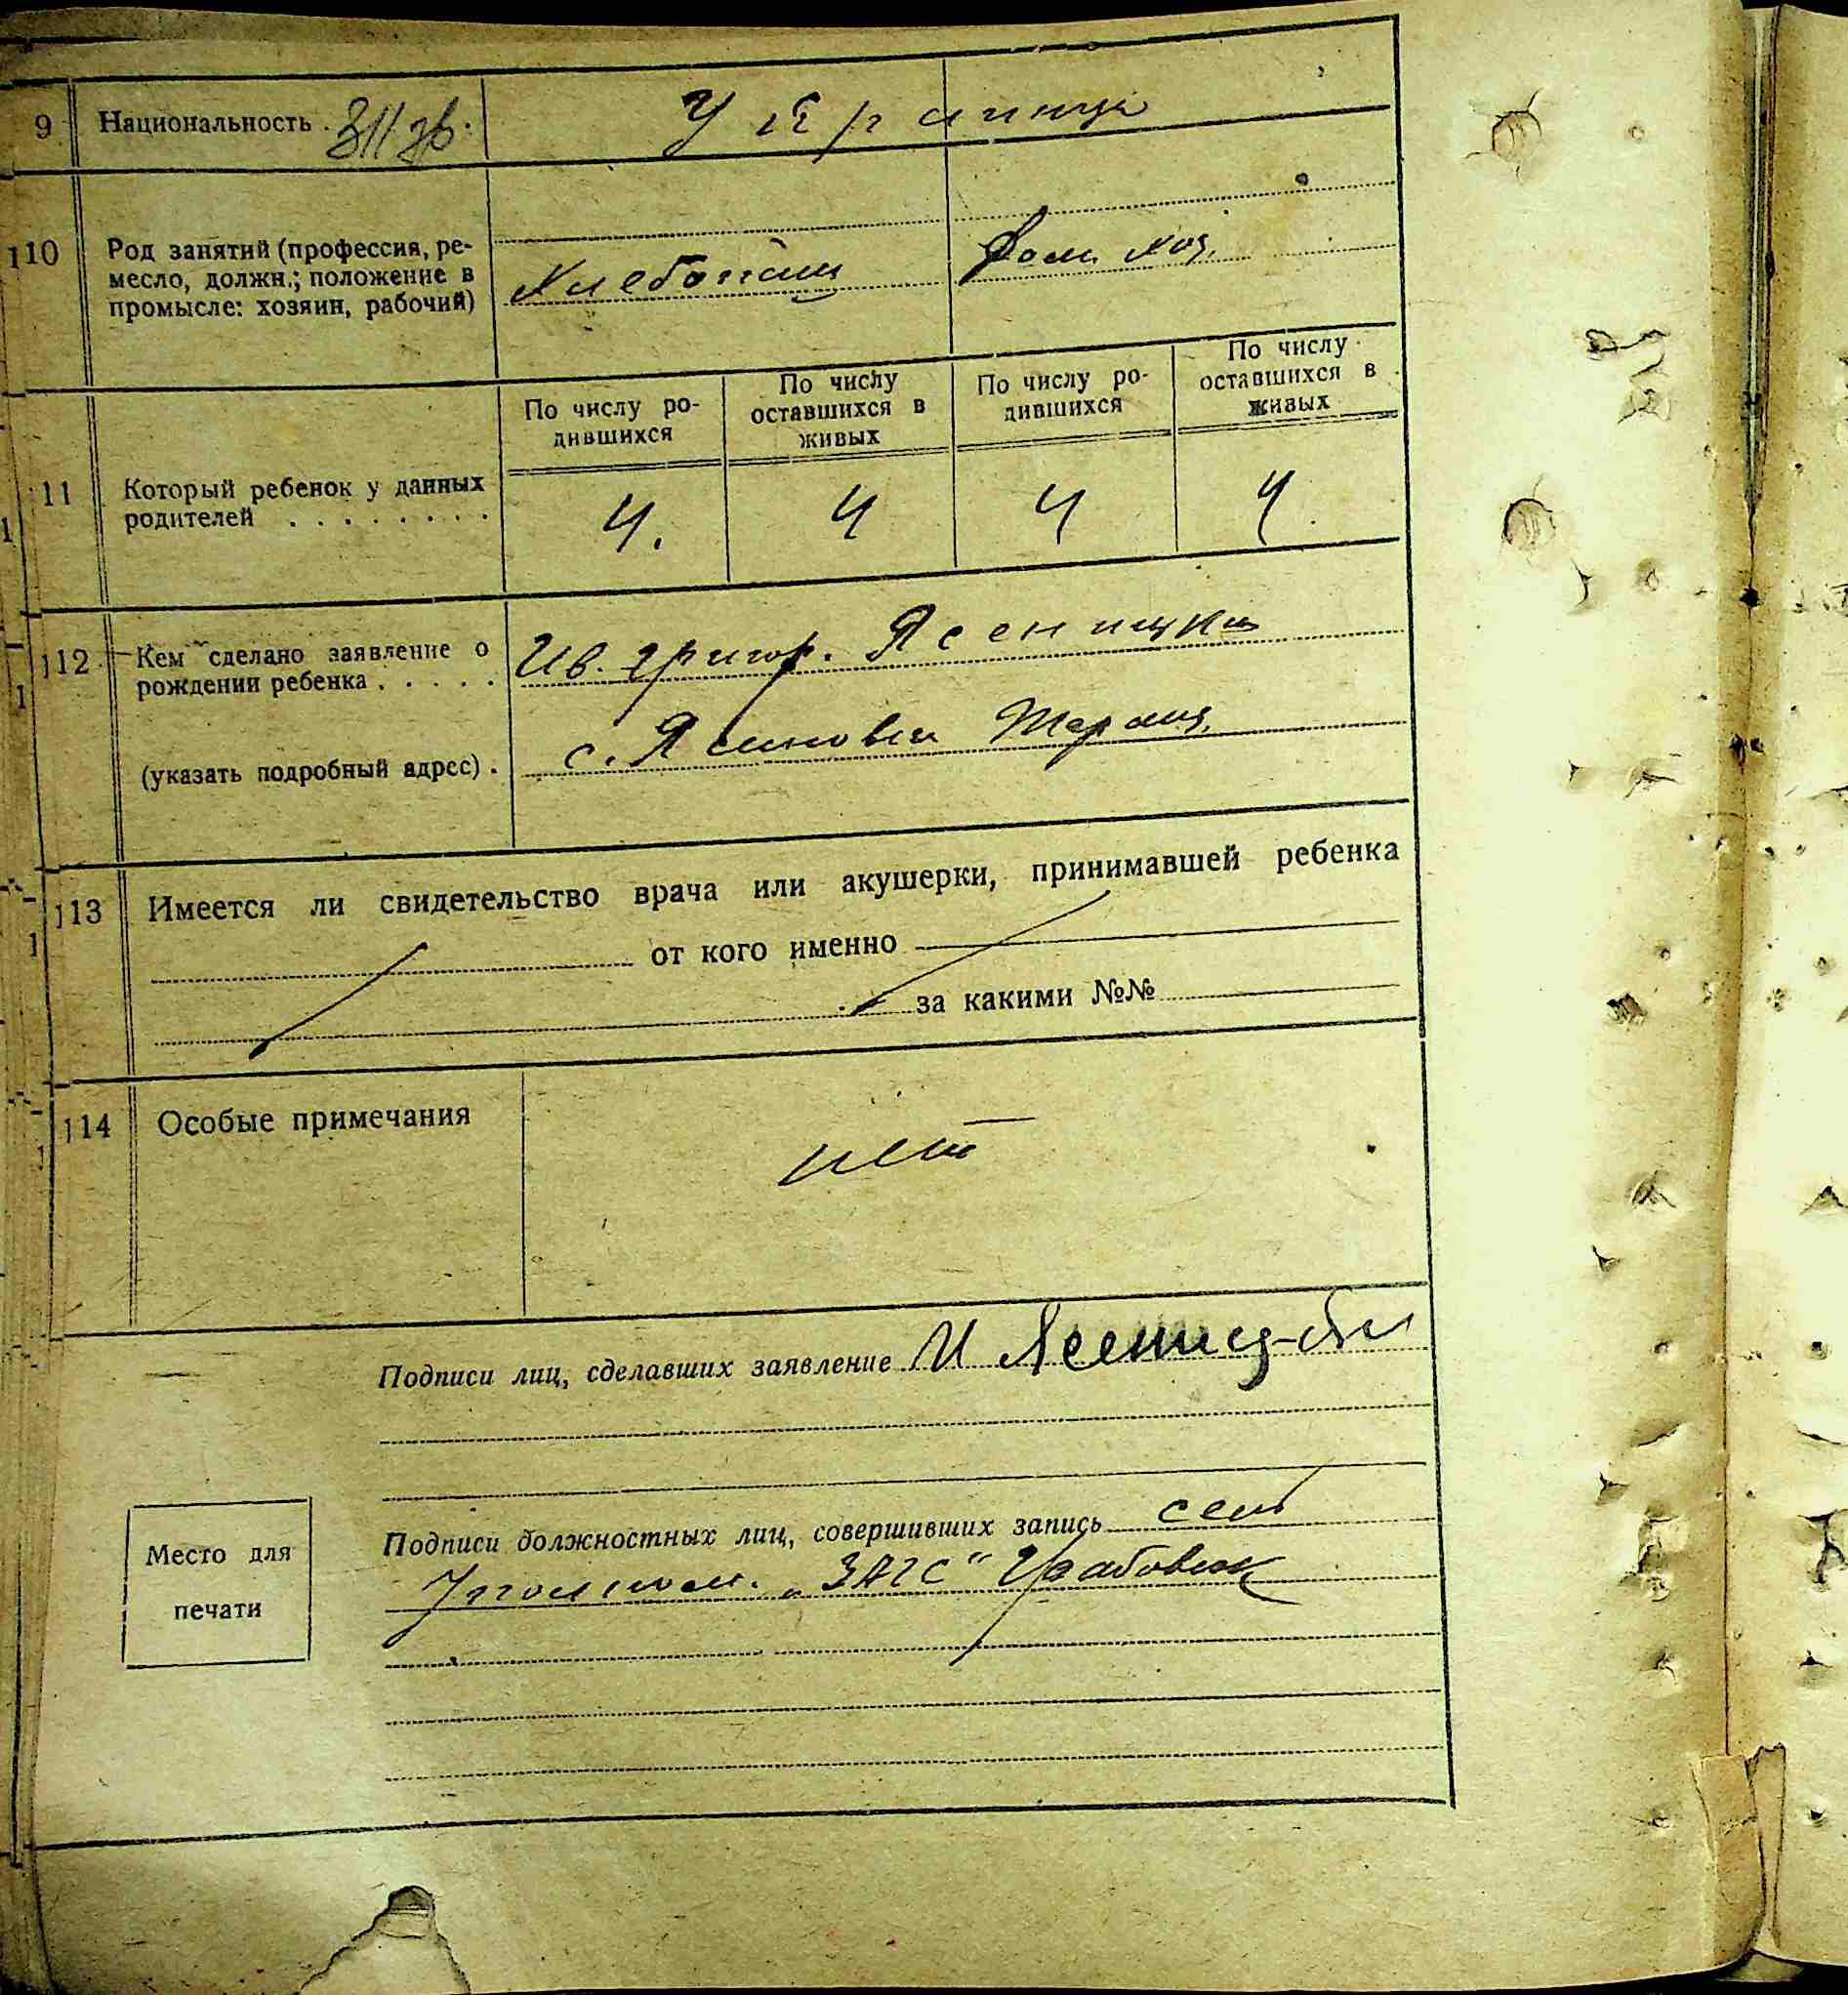 9 Национальность. Украинцы
110 Род занятий (профессия, ре-
месло, должн.; положение в
промысле: хозяин, рабочий)
Хлебопаш Дом. хоз.
По числу ро-
дившихся
По числу
оставшихся в
живых
По числу ро-
дившихся
По числу
оставшихся в
живых
11 Который ребенок у данных
родителей . . . . . . . .
4. 4 4 4.
112 Кем сделано заявление о
рождении ребенка . . . . .
Ив. Григор. Ясеницки
(указать подробный адрес) .
с. Ясиновки
113 Имеется ли свидетельство врача или акушерки, принимавшей ребенка
от кого именно
за какими №№
114 Особые примечания
нет
Подписи лиц, сделавших заявление И Ясениц
Подписи должностных лиц, совершивших запись
"ЗАГС"
Место для
печати